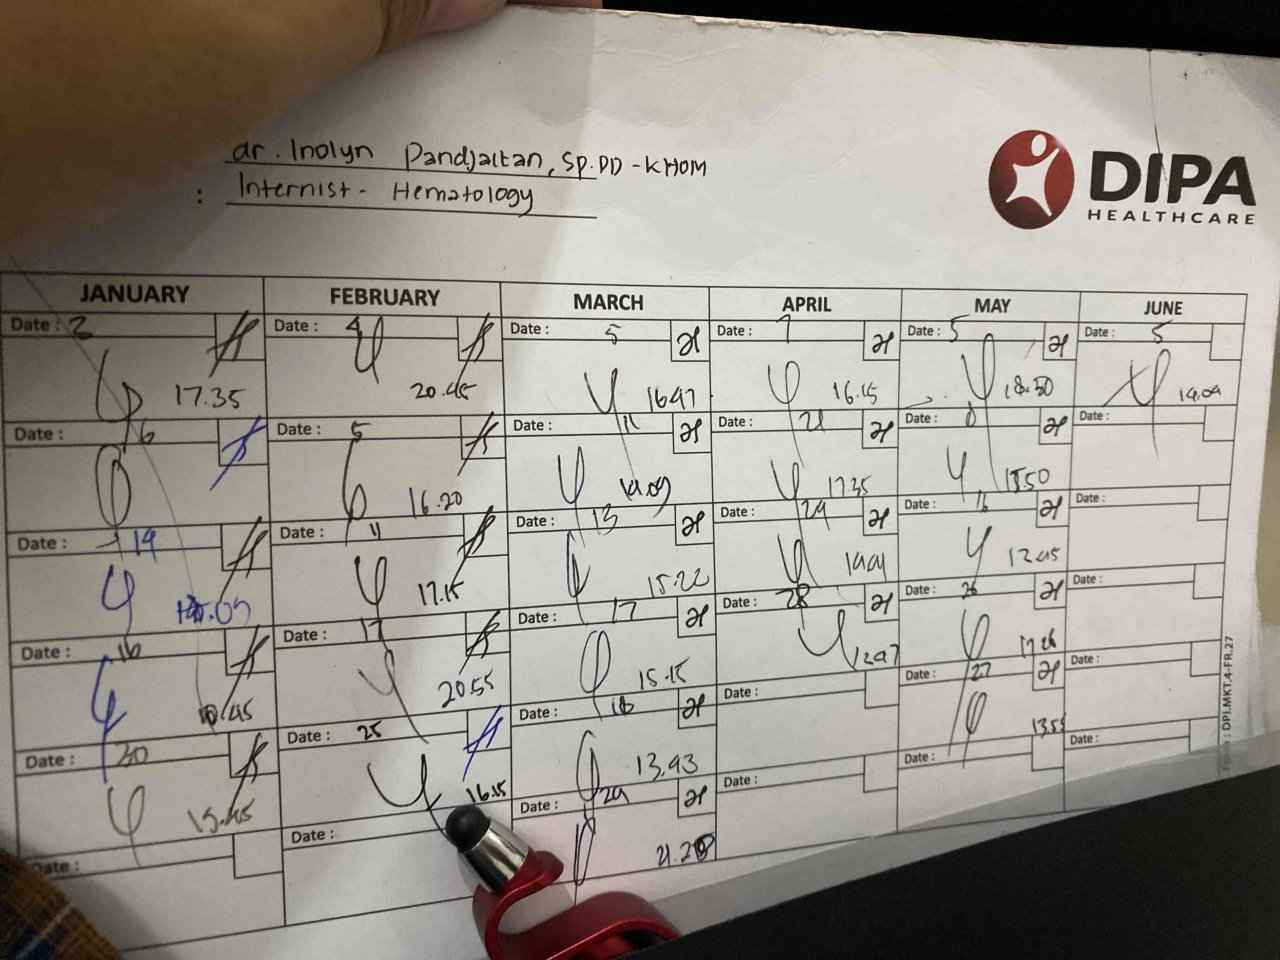 dr. Inolyn Pandjaitan, Sp.PD - KHOM
: Internist - Hematology
DIPA
HEALTHCARE
JANUARY FEBRUARY MARCH APRIL MAY JUNE
Date : 2 Date : 4 Date : 5 Date : 7 Date : 5 Date : 5
17.35 20.45 16.47 16.15 18.30 14.04
Date : 6 Date : 5 Date : 11 Date : 21 Date : 8 Date :
16.20 14.09 17.35
Date : 19 Date : 11 Date : 13 Date : 24 Date : 16 Date :
17.15 15.22 12.45
Date : 16 Date : 17 Date : 17 Date : 28 Date : 26 Date :
20.55 15.15 12.47 17.26
Date : 30 Date : 25 Date : 18 Date : Date : 27 Date :
15.45 16.15 13.43 13.55
Date : Date : Date : 24 Date : Date : Date :
: DPI.MKT.4-FR.27